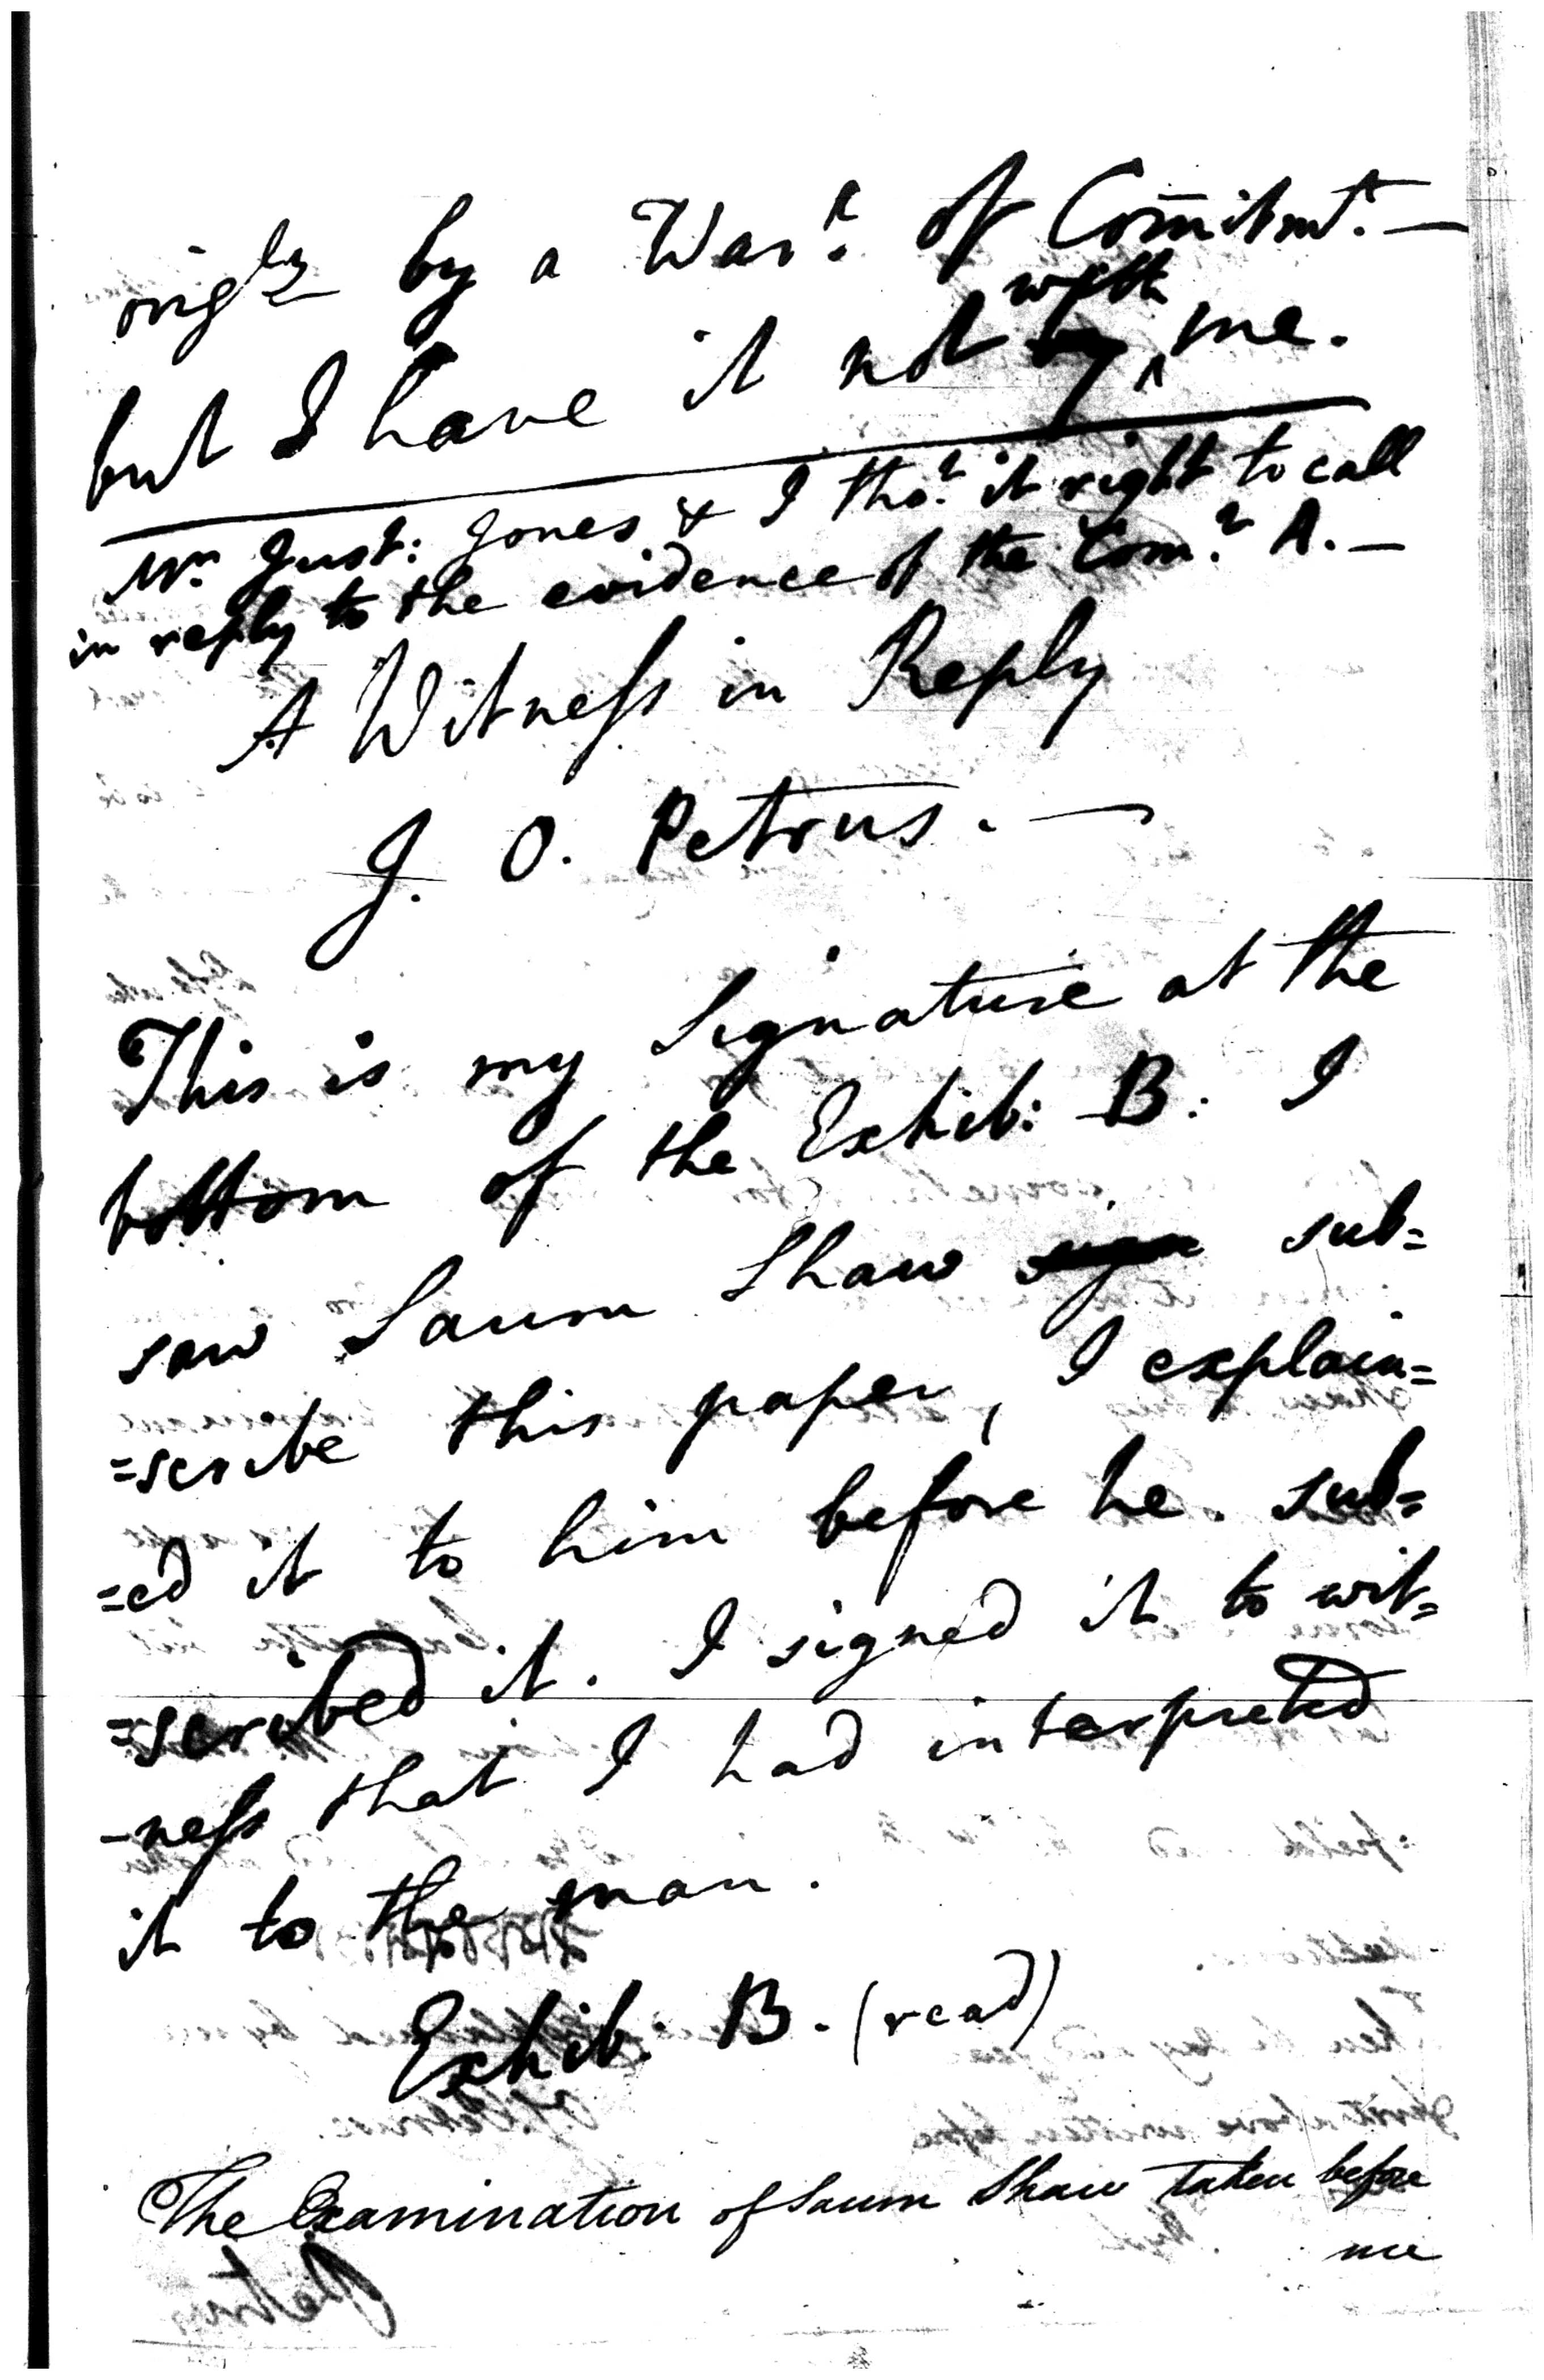 origly by a Wart. of Com̄itmt. —
but I have it not by with me.
Mr. Just: Jones & I thot. it right to call
in reply to the evidence of the Comr. A. —
A Witness in Reply
J. O. Petrus. —
This is my Signature at the
bottom of the Exhib: B: I
saw Saum Shaw sign sub=
=scribe this paper, I explain=
=ed it to him before he sub=
=scribed it. I signed it to wit=
-ness that I had interpreted
it to the man.
Exhib: B. (read)
The Examination of Saum Shaw taken before
me